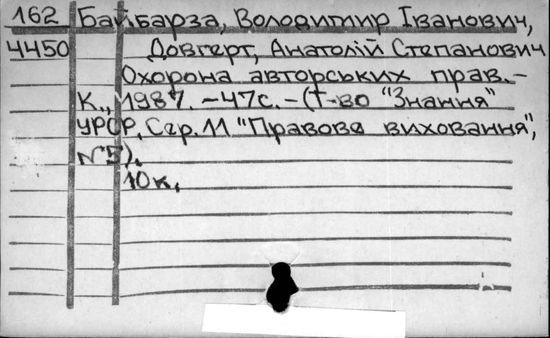 162 Байбарза, Володимир Іванович,
4450 Довгерт, Анатолій Степанович
Охорона авторських прав.-
К., 1987. -47с.-(т-во "Знання"
УРСР, Сер. 11 "Правове виховання",
№5).
10к.